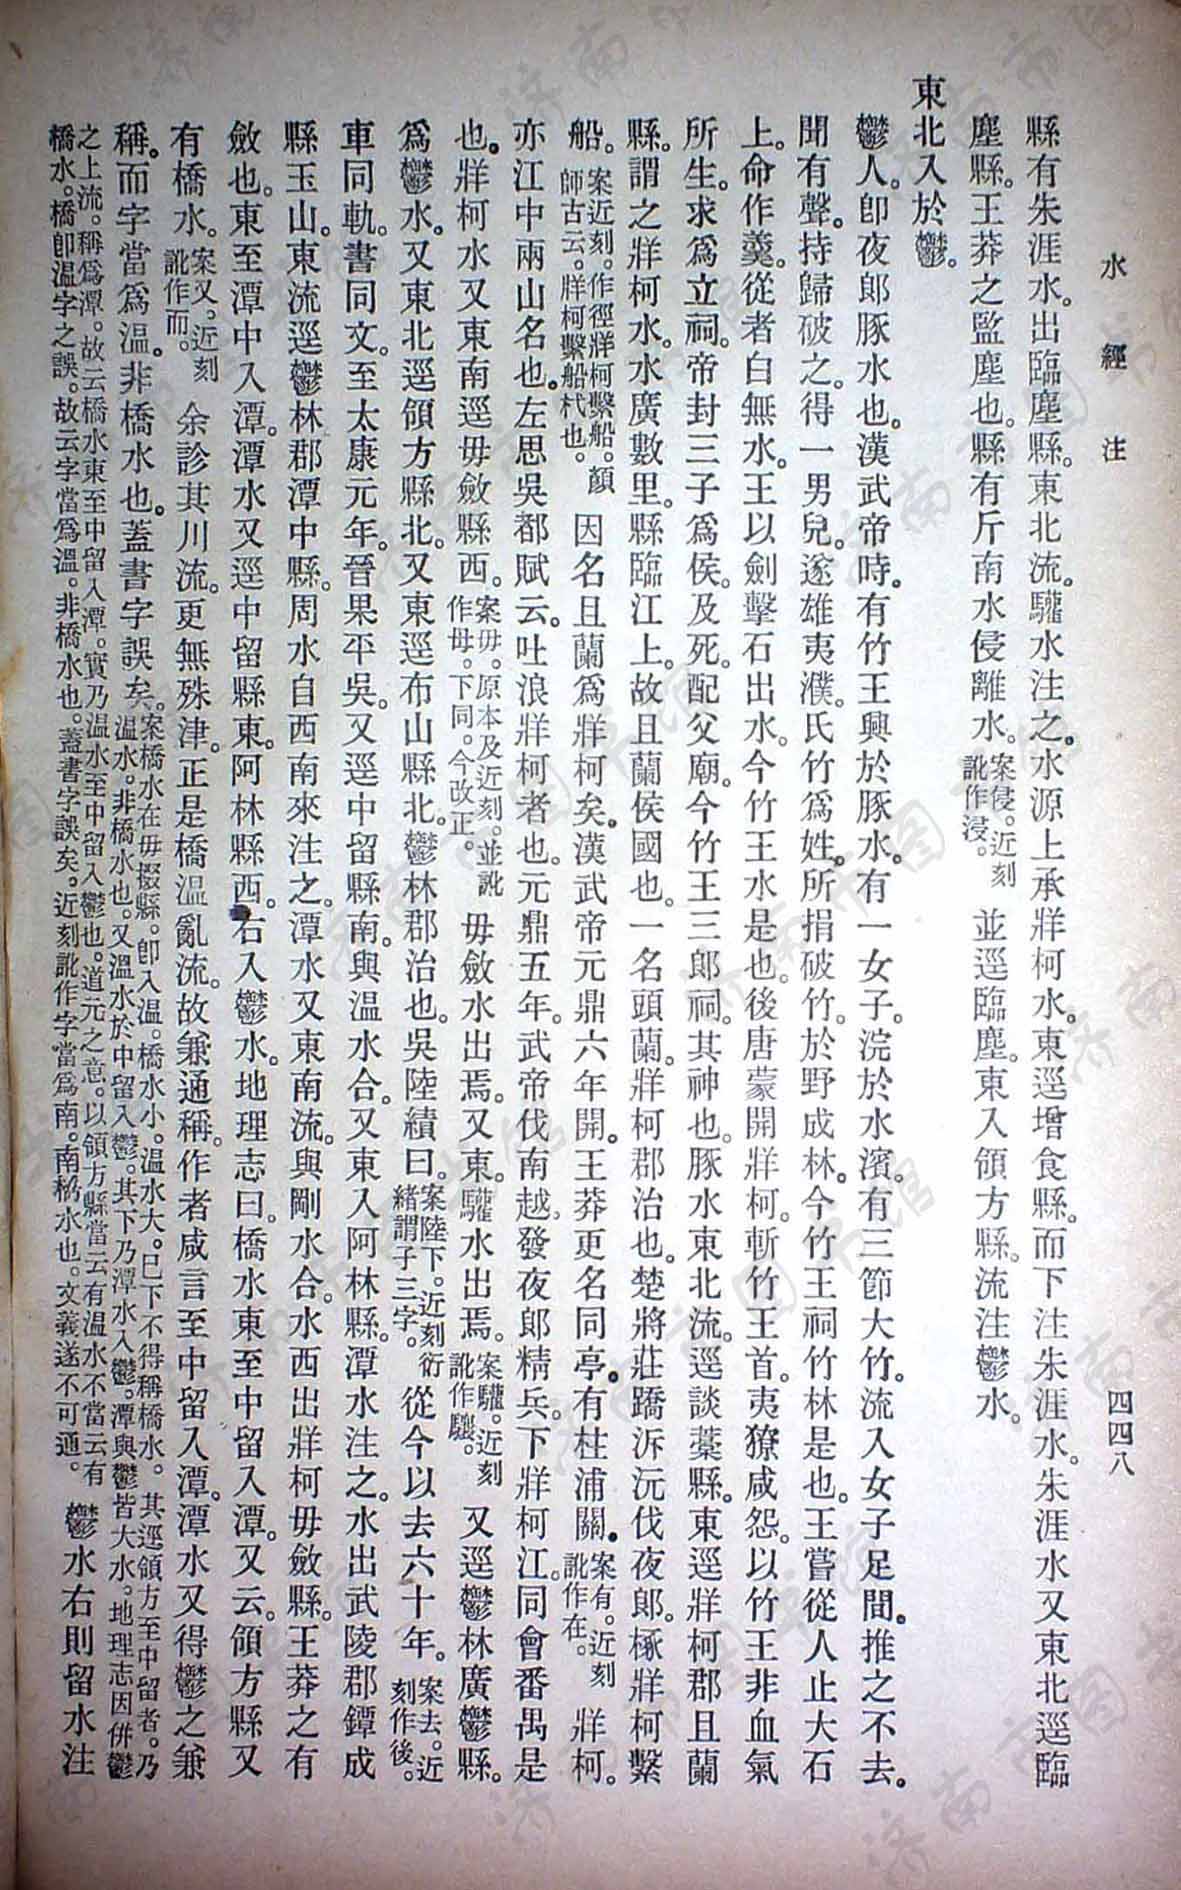 水經注
四四八
縣有朱涯水。出臨塵縣。東北流。驩水注之。水源上承牂柯水。東逕增食縣。而下注朱涯水。朱涯水又東北逕臨
塵縣。王莽之監塵也。縣有斤南水侵離水。案侵。近刻訛作浸。並逕臨塵。東入領方縣。流注鬱水。
東北入於鬱。
鬱人。卽夜郞豚水也。漢武帝時。有竹王興於豚水。有一女子。浣於水濱。有三節大竹。流入女子足間。推之不去。
聞有聲。持歸破之。得一男兒。遂雄夷濮。氏竹爲姓。所捐破竹。於野成林。今竹王祠竹林是也。王嘗從人止大石
上。命作羹。從者白無水。王以劍擊石出水。今竹王水是也。後唐蒙開牂柯。斬竹王首。夷獠咸怨。以竹王非血氣
所生。求爲立祠。帝封三子爲侯。及死。配父廟。今竹王三郞祠。其神也。豚水東北流。逕談藁縣。東逕牂柯郡且蘭
縣。謂之牂柯水。水廣數里。縣臨江上。故且蘭侯國也。一名頭蘭。牂柯郡治也。楚將莊蹻泝沅伐夜郞。椓牂柯繫
船。案近刻。作徑牂柯繫船。顏師古云。牂柯繫船杙也。因名且蘭爲牂柯矣。漢武帝元鼎六年開。王莽更名同亭。有柱浦關。案有。近刻訛作在。牂柯。
亦江中兩山名也。左思吳都賦云。吐浪牂柯者也。元鼎五年。武帝伐南越。發夜郞精兵。下牂柯江。同會番禺是
也。牂柯水又東南逕毋斂縣西。案毋。原本及近刻。並訛作母。下同。今改正。毋斂水出焉。又東。驩水出焉。案驩。近刻訛作驪。又逕鬱林廣鬱縣。
爲鬱水。又東北逕領方縣北。又東逕布山縣北。鬱林郡治也。吳陸績曰。案陸下。近刻衍緒謂子三字。從今以去六十年。案去。近刻作後。
車同軌。書同文。至太康元年。晉果平吳。又逕中留縣南。與温水合。又東入阿林縣。潭水注之。水出武陵郡鐔成
縣玉山。東流逕鬱林郡潭中縣。周水自西南來注之。潭水又東南流。與剛水合。水西出牂柯毋斂縣。王莽之有
斂也。東至潭中入潭。潭水又逕中留縣東。阿林縣西。右入鬱水。地理志曰。橋水東至中留入潭。又云。領方縣又
有橋水。案又。近刻訛作而。余診其川流。更無殊津。正是橋温亂流。故兼通稱。作者咸言至中留入潭。潭水又得鬱之兼
稱。而字當爲温。非橋水也。蓋書字誤矣。案橋水在毋掇縣。卽入温。橋水小。温水大。已下不得稱橋水。其逕領方至中留者。乃温水。非橋水也。又温水於中留入鬱。其下乃潭水入鬱。潭與鬱皆大水。地理志因併鬱
之上流。稱爲潭。故云橋水東至中留入潭。實乃温水至中留入鬱也。道元之意。以領方縣當云有温水不當云有橋水。橋卽温字之誤。故云字當爲温。非橋水也。蓋書字誤矣。近刻訛作字當爲南。南橋水也。文義遂不可通。鬱水右則留水注